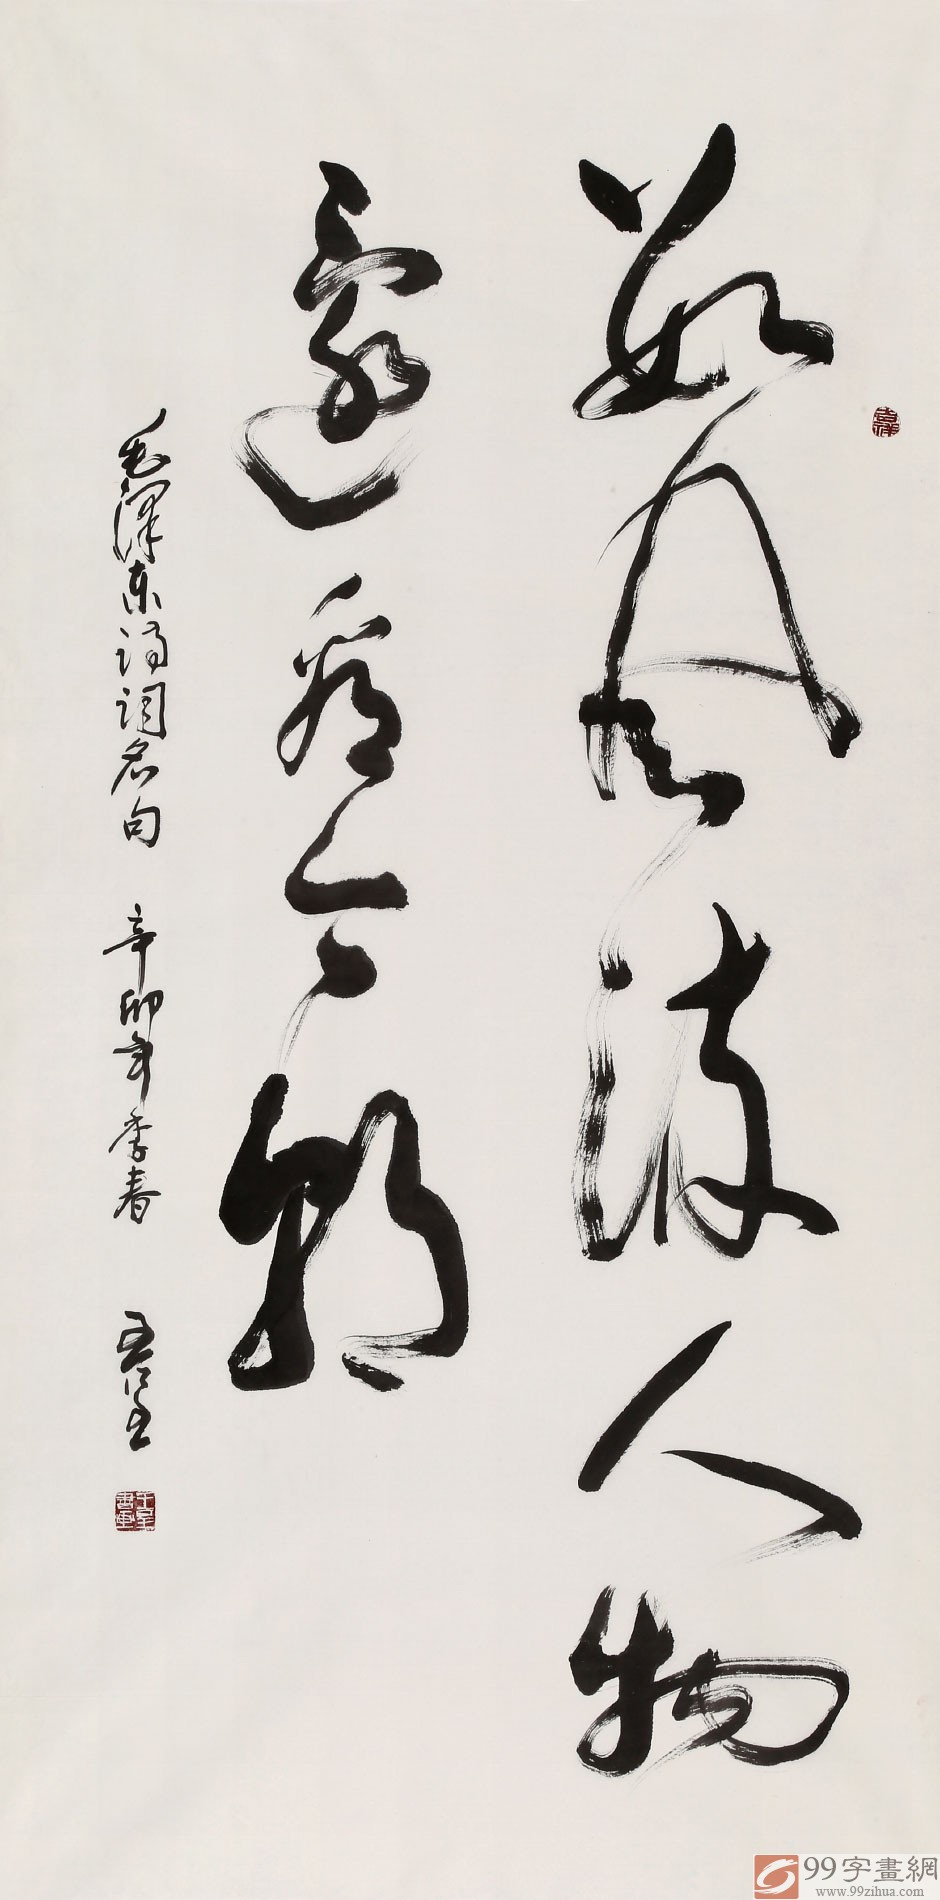 数风流人物
還看今朝
毛泽东诗词名句 辛卯年季春
99字畫網
www.99zihua.com